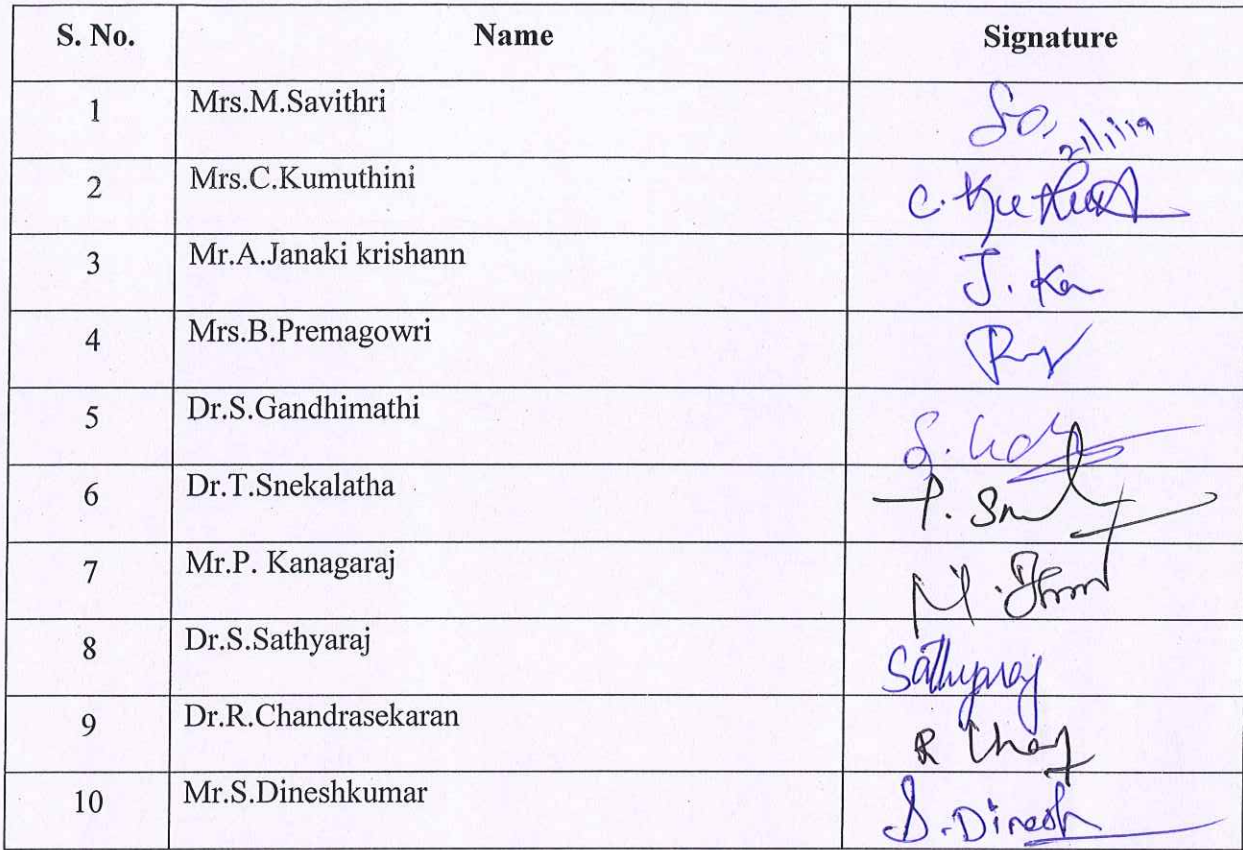 S. No. Name Signature
1 Mrs.M.Savithri 21/1/19
2 Mrs.C.Kumuthini C.
3 Mr.A.Janaki krishann J. Ka
4 Mrs.B.Premagowri
5 Dr.S.Gandhimathi S.
6 Dr.T.Snekalatha
7 Mr.P. Kanagaraj
8 Dr.S.Sathyaraj Sathyaraj
9 Dr.R.Chandrasekaran R
10 Mr.S.Dineshkumar S.Dinesh